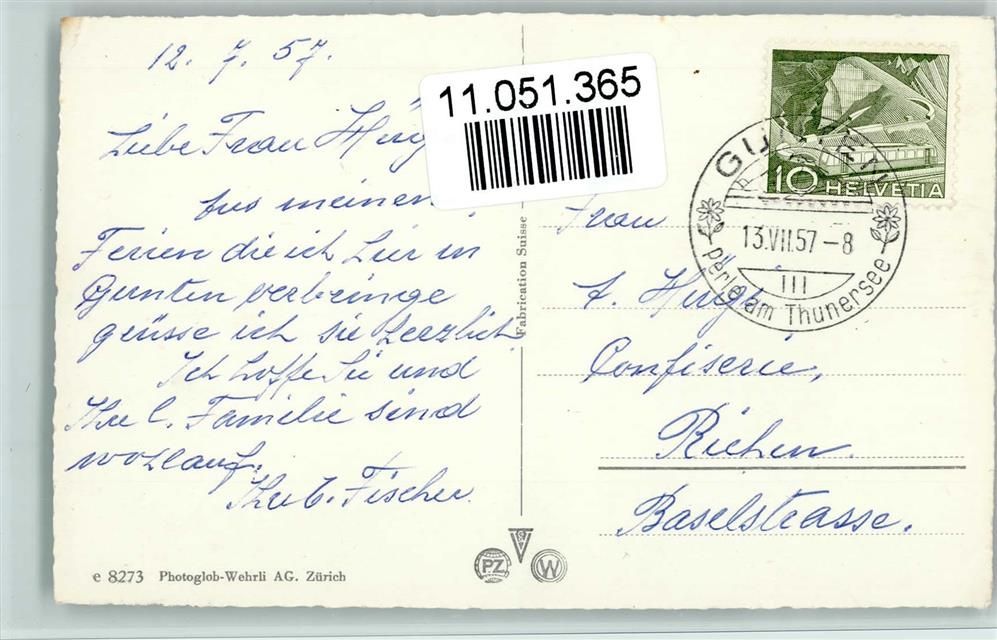 12. 7. 57.
11.051.365
Liebe Frau
Aus meinen
Ferien die ich hier in
Gunten verbringe
grüsse ich sie herzlich
Ich hoffe Sie und
Ihre l. Familie sind
wohlauf.
Ihre C. Fischer
e 8273 Photoglob-Wehrli AG. Zürich
Fabrication Suisse
PZ
W
10 HELVETIA
GUNTEN
13.VII.57-8
III
Perle am Thunersee
Frau
A. Hügli
Confiserie,
Riehen.
Baselstrasse.